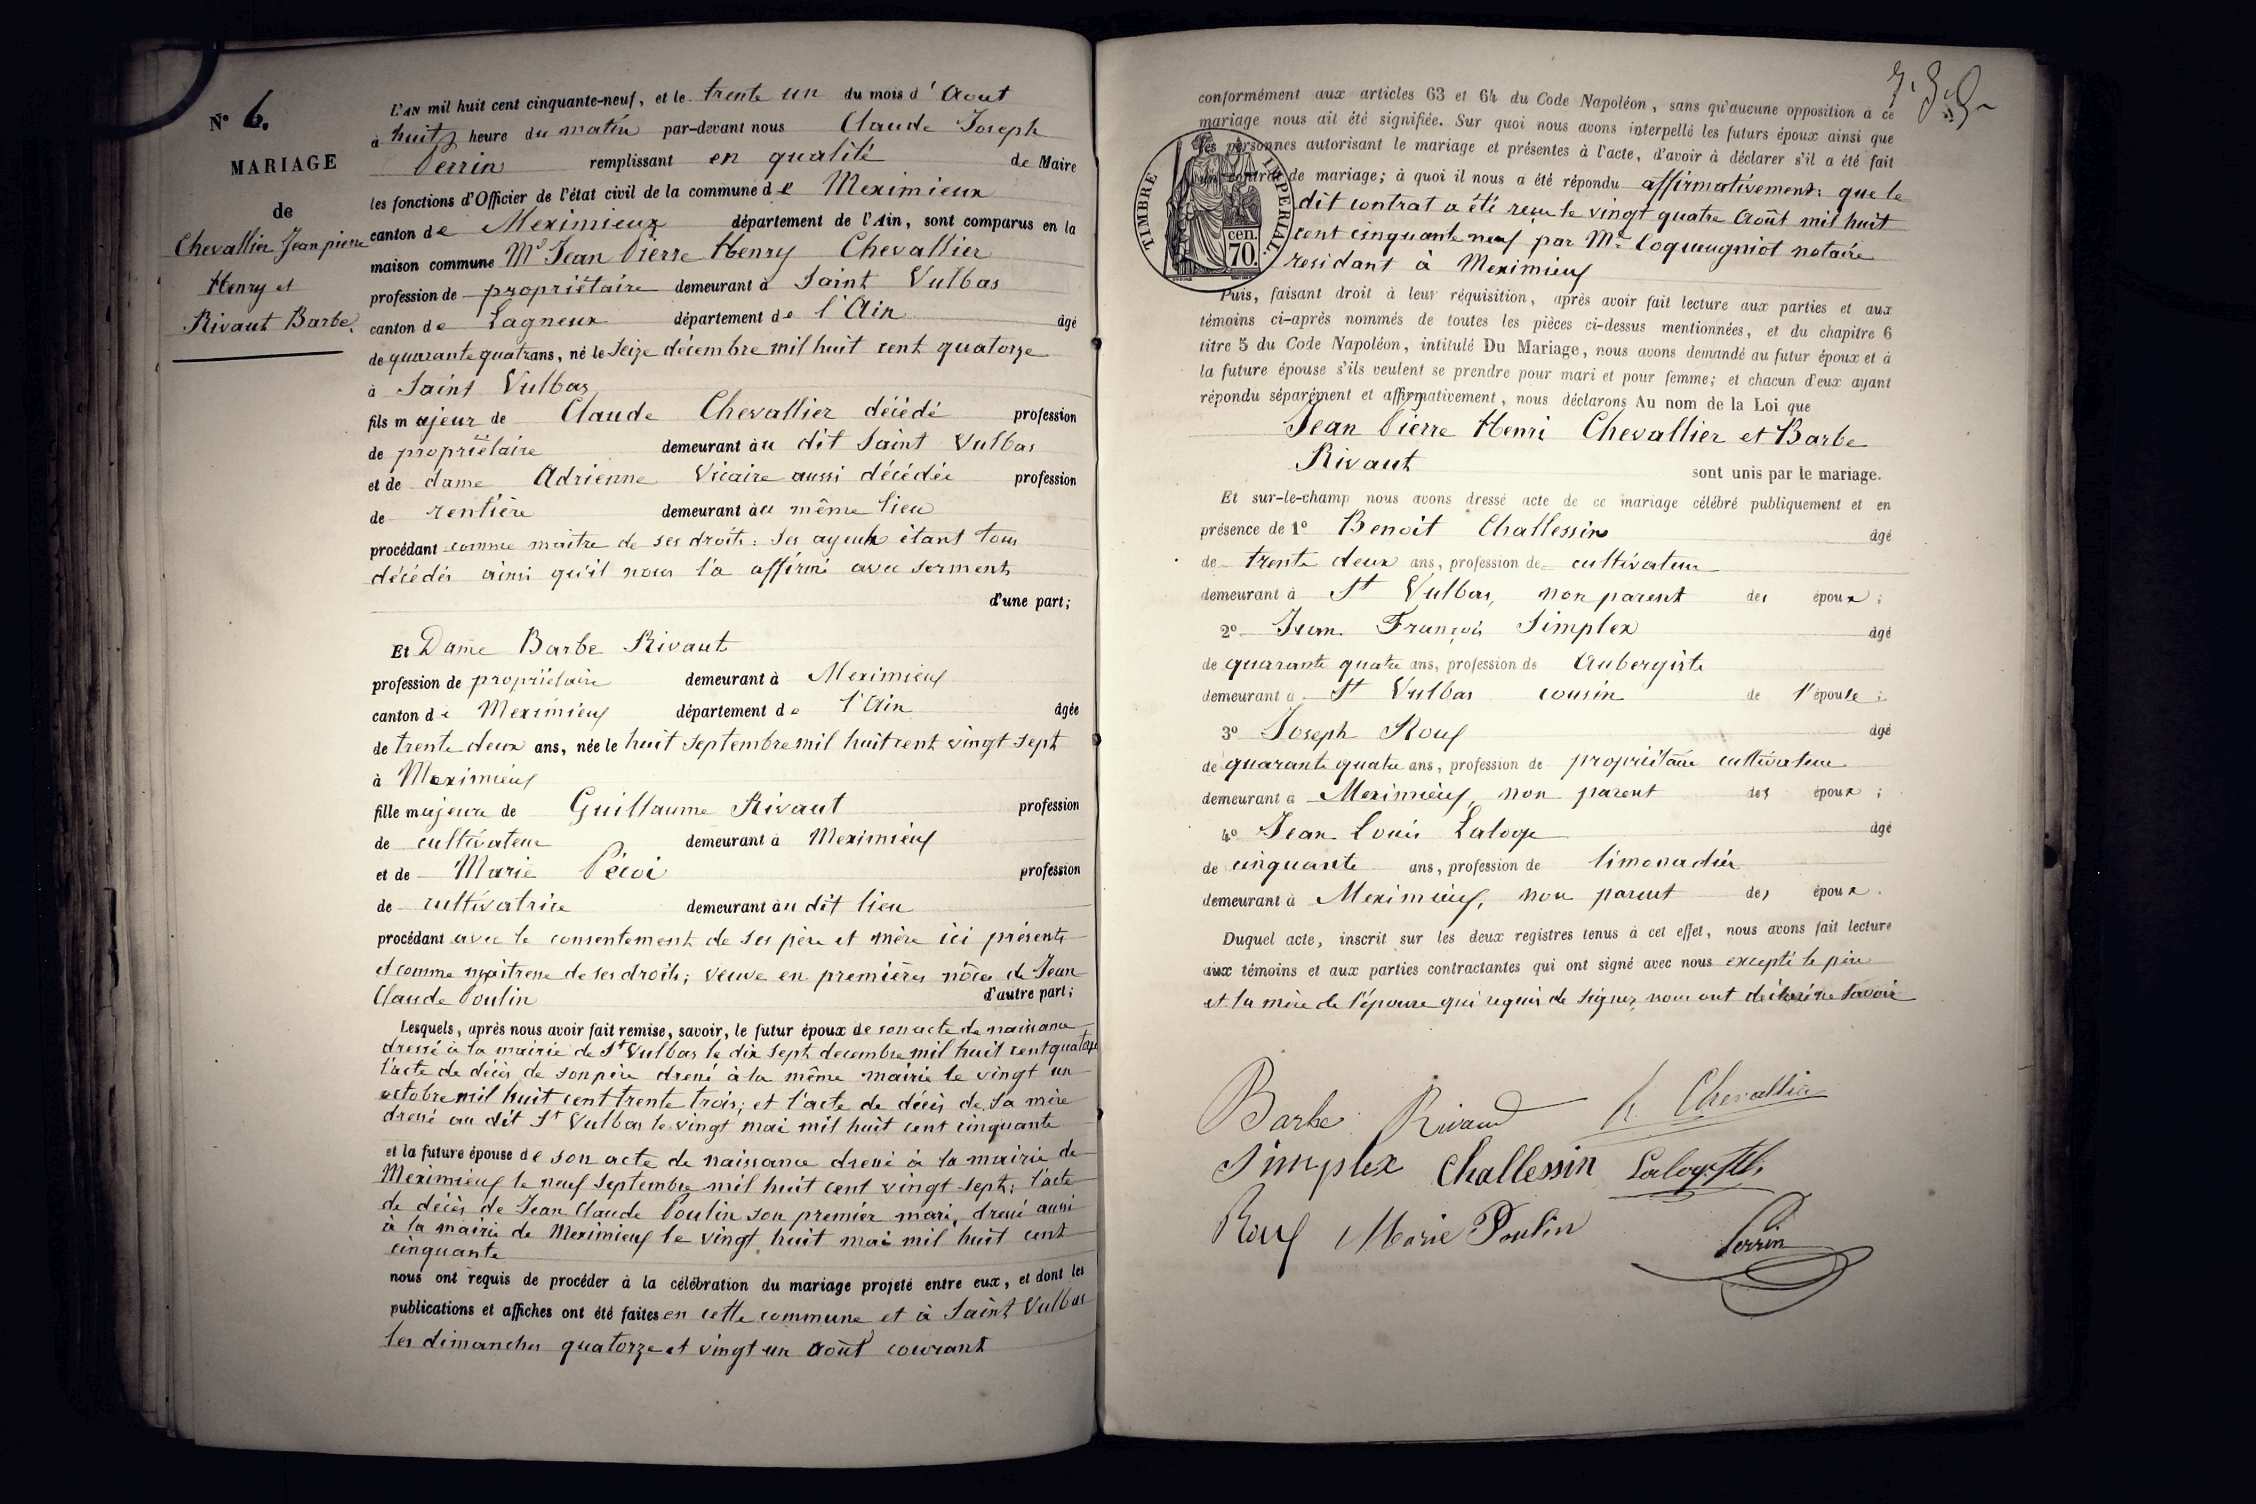 N° 6.
MARIAGE
de
Chevallier Jean pierre
Henry et
Rivaut Barbe.
L'AN mil huit cent cinquante-neuf, et le trente un du mois d'Aout
à huit heure du matin par-devant nous Claude Joseph
Perrin remplissant en qualité de Maire
les fonctions d'Officier de l'état civil de la commune de Meximieux
canton de Meximieux département de l'Ain, sont comparus en la
maison commune Mr Jean Pierre Henry Chevallier
profession de propriétaire demeurant à Saint Vulbas
canton de Lagneux département de l'Ain âgé
de quarante quatre ans, né le Seize décembre mil huit cent quatorze
à Saint Vulbas
fils majeur de Claude Chevallier décédé profession
de propriètaire demeurant au dit Saint Vulbas
et de dame Adrienne Vicaire aussi décédée profession
de rentière demeurant au même lieu
procédant comme maître de ses droits: Ses ayeux étant tous
décédés ainsi qu'il nous l'a affirmé avec serment
d'une part;
Et Dame Barbe Rivaut
profession de propriétaire demeurant à Meximieux
canton de Meximieux département de l'Ain âgée
de trente deux ans, née le huit Septembre mil huit cent vingt sept
à Meximieux
fille majeure de Guillaume Rivaut profession
de cultivateur demeurant à Meximieux
et de Marie Pécoi profession
de cultivatrice demeurant au dit lieu
procédant avec le consentement de ses père et mère ici présents
et comme maitresse de ses droits; veuve en premières nôces de Jean
Claude Poulin d'autre part;
Lesquels, après nous avoir fait remise, savoir, le futur époux de son acte de naissance
dressé à la mairie de St Vulbas le dix sept decembre mil huit cent quatorze
l'acte de décès de son père dressé à la même mairie le vingt un
octobre mil huit cent trente trois; et l'acte de décès de sa mère
dressé au dit St Vulbas le vingt mai mil huit cent cinquante
et la future épouse de son acte de naissance dressé à la mairie de
Meximieux le neuf Septembre mil huit cent vingt sept; l'acte
de décès de Jean Claude Poulin son premier mari, dressé aussi
à la mairie de Meximieux le vingt huit mai mil huit cent
cinquante
nous ont requis de procéder à la célébration du mariage projeté entre eux, et dont les
publications et affiches ont été faites en cette commune et à Saint Vulbas
les dimanches quatorze et vingt un août courant
conformément aux articles 63 et 64 du Code Napoléon, sans qu'aucune opposition à ce
mariage nous ait été signifiée. Sur quoi nous avons interpellé les futurs époux ainsi que
les personnes autorisant le mariage et présentes à l'acte, d'avoir à déclarer s'il a été fait
un contrat de mariage; à quoi il nous a été répondu affirmativement: que le
dit contrat a été reçu le vingt quatre Août mil huit
cent cinquante neuf par Me Coquaugniot notaire
residant à Meximieux
TIMBRE IMPÉRIAL.
cen.
70.
Puis, faisant droit à leur réquisition, après avoir fait lecture aux parties et aux
témoins ci-après nommés de toutes les pièces ci-dessus mentionnées, et du chapitre 6
titre 5 du Code Napoléon, intitulé Du Mariage, nous avons demandé au futur époux et à
la future épouse s'ils veulent se prendre pour mari et pour femme; et chacun d'eux ayant
répondu séparément et affirmativement, nous déclarons Au nom de la Loi que
Jean Pierre Henri Chevallier et Barbe
Rivaut sont unis par le mariage.
Et sur-le-champ nous avons dressé acte de ce mariage célébré publiquement et en
présence de 1° Benoit Challessin âgé
de trente deux ans, profession de cultivateur
demeurant à St Vulbas, non parent des époux;
2° Jean François Simplex âgé
de quarante quatre ans, profession de Aubergiste
demeurant à St Vulbas cousin de l'épouse;
3° Joseph Roux âgé
de quarante quatre ans, profession de propriétaire cultivateur
demeurant à Meximieux, non parent des époux;
4° Jean Louis Laloge âgé
de cinquante ans, profession de limonadier
demeurant à Meximieux, non parent des époux.
Duquel acte, inscrit sur les deux registres tenus à cet effet, nous avons fait lecture
aux témoins et aux parties contractantes qui ont signé avec nous excepté le père
et la mère de l'épouse qui requis de signer, nous ont déclaré ne savoir
Barbe Rivaud h. Chevallier
Simplex Challessin Laloge
Roux Marie Poulin Perrin